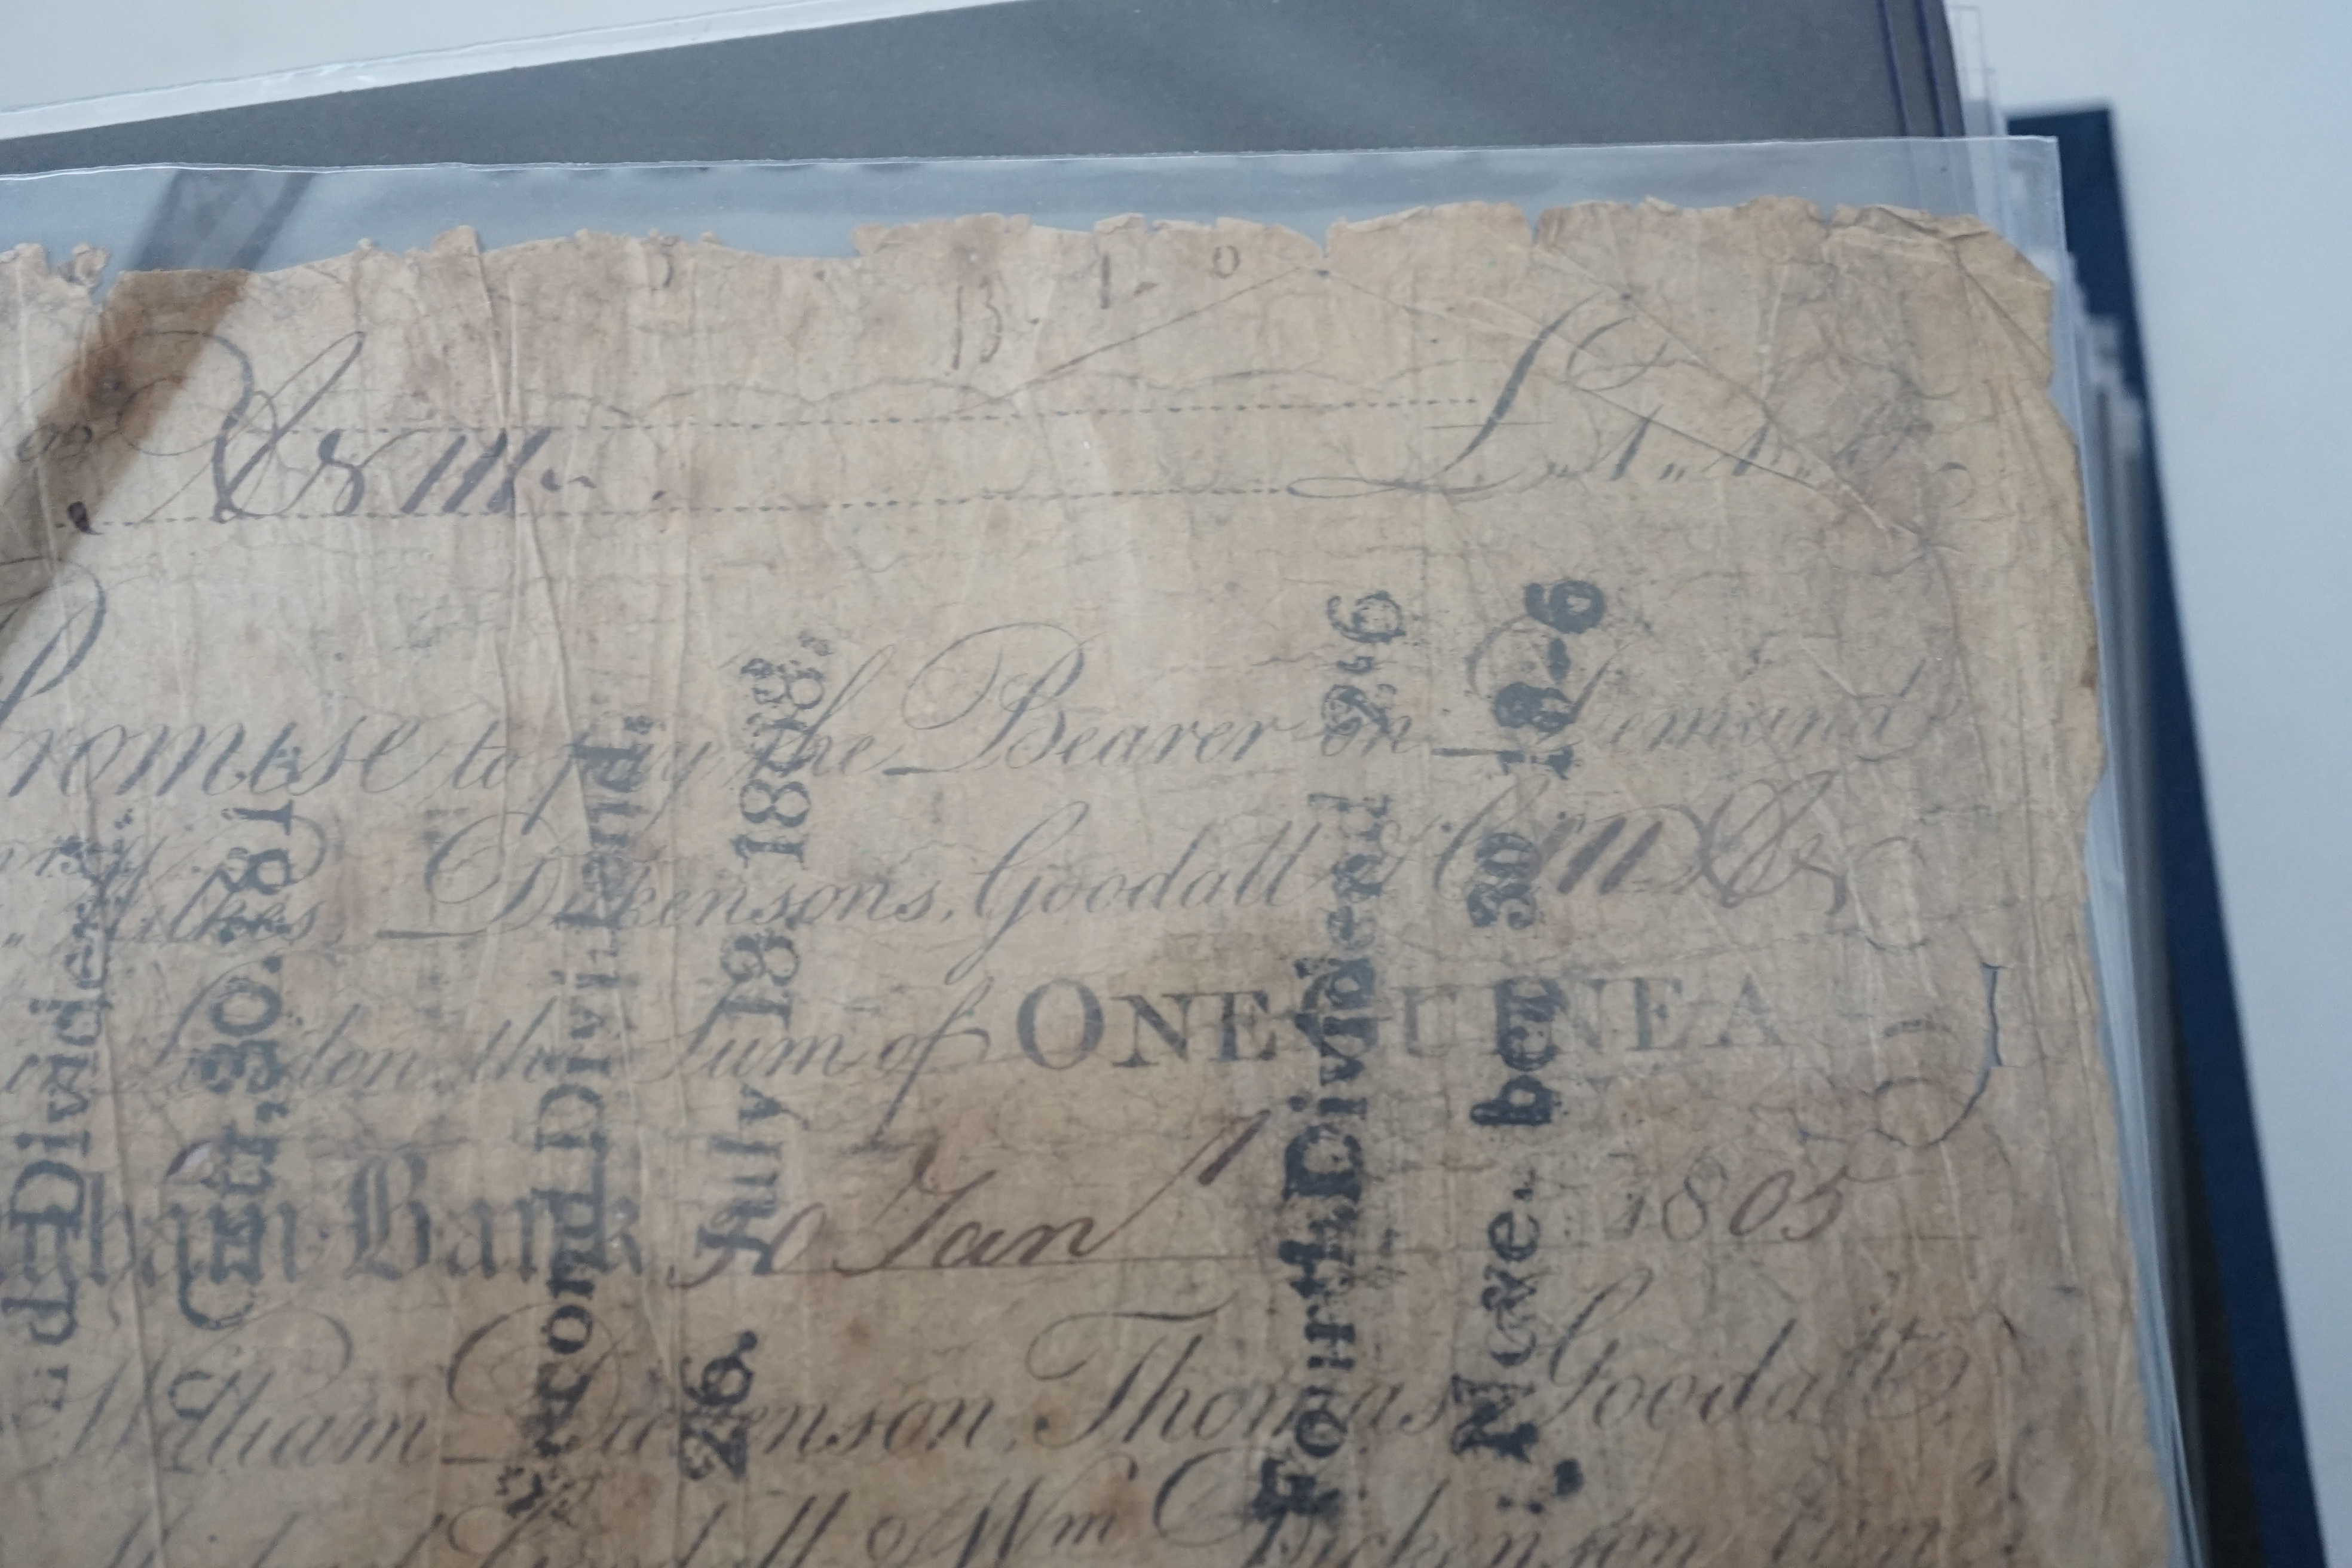 13. 1. 0
£1.1.
Promise to pay the Bearer on Demand
Wilkes, Dickensons, Goodall &
London, the Sum of ONE GUINEA
ham Bank 30 Jan 1805
William Dickenson, Thomas Goodall,
Goodall & Wm Dickenson Jun
d Dividend
Octr, 30. 181
Second Dividend,
July 18, 1808,
26.
Fourth Dividend 2,,6
Nove. ber 30 18-6